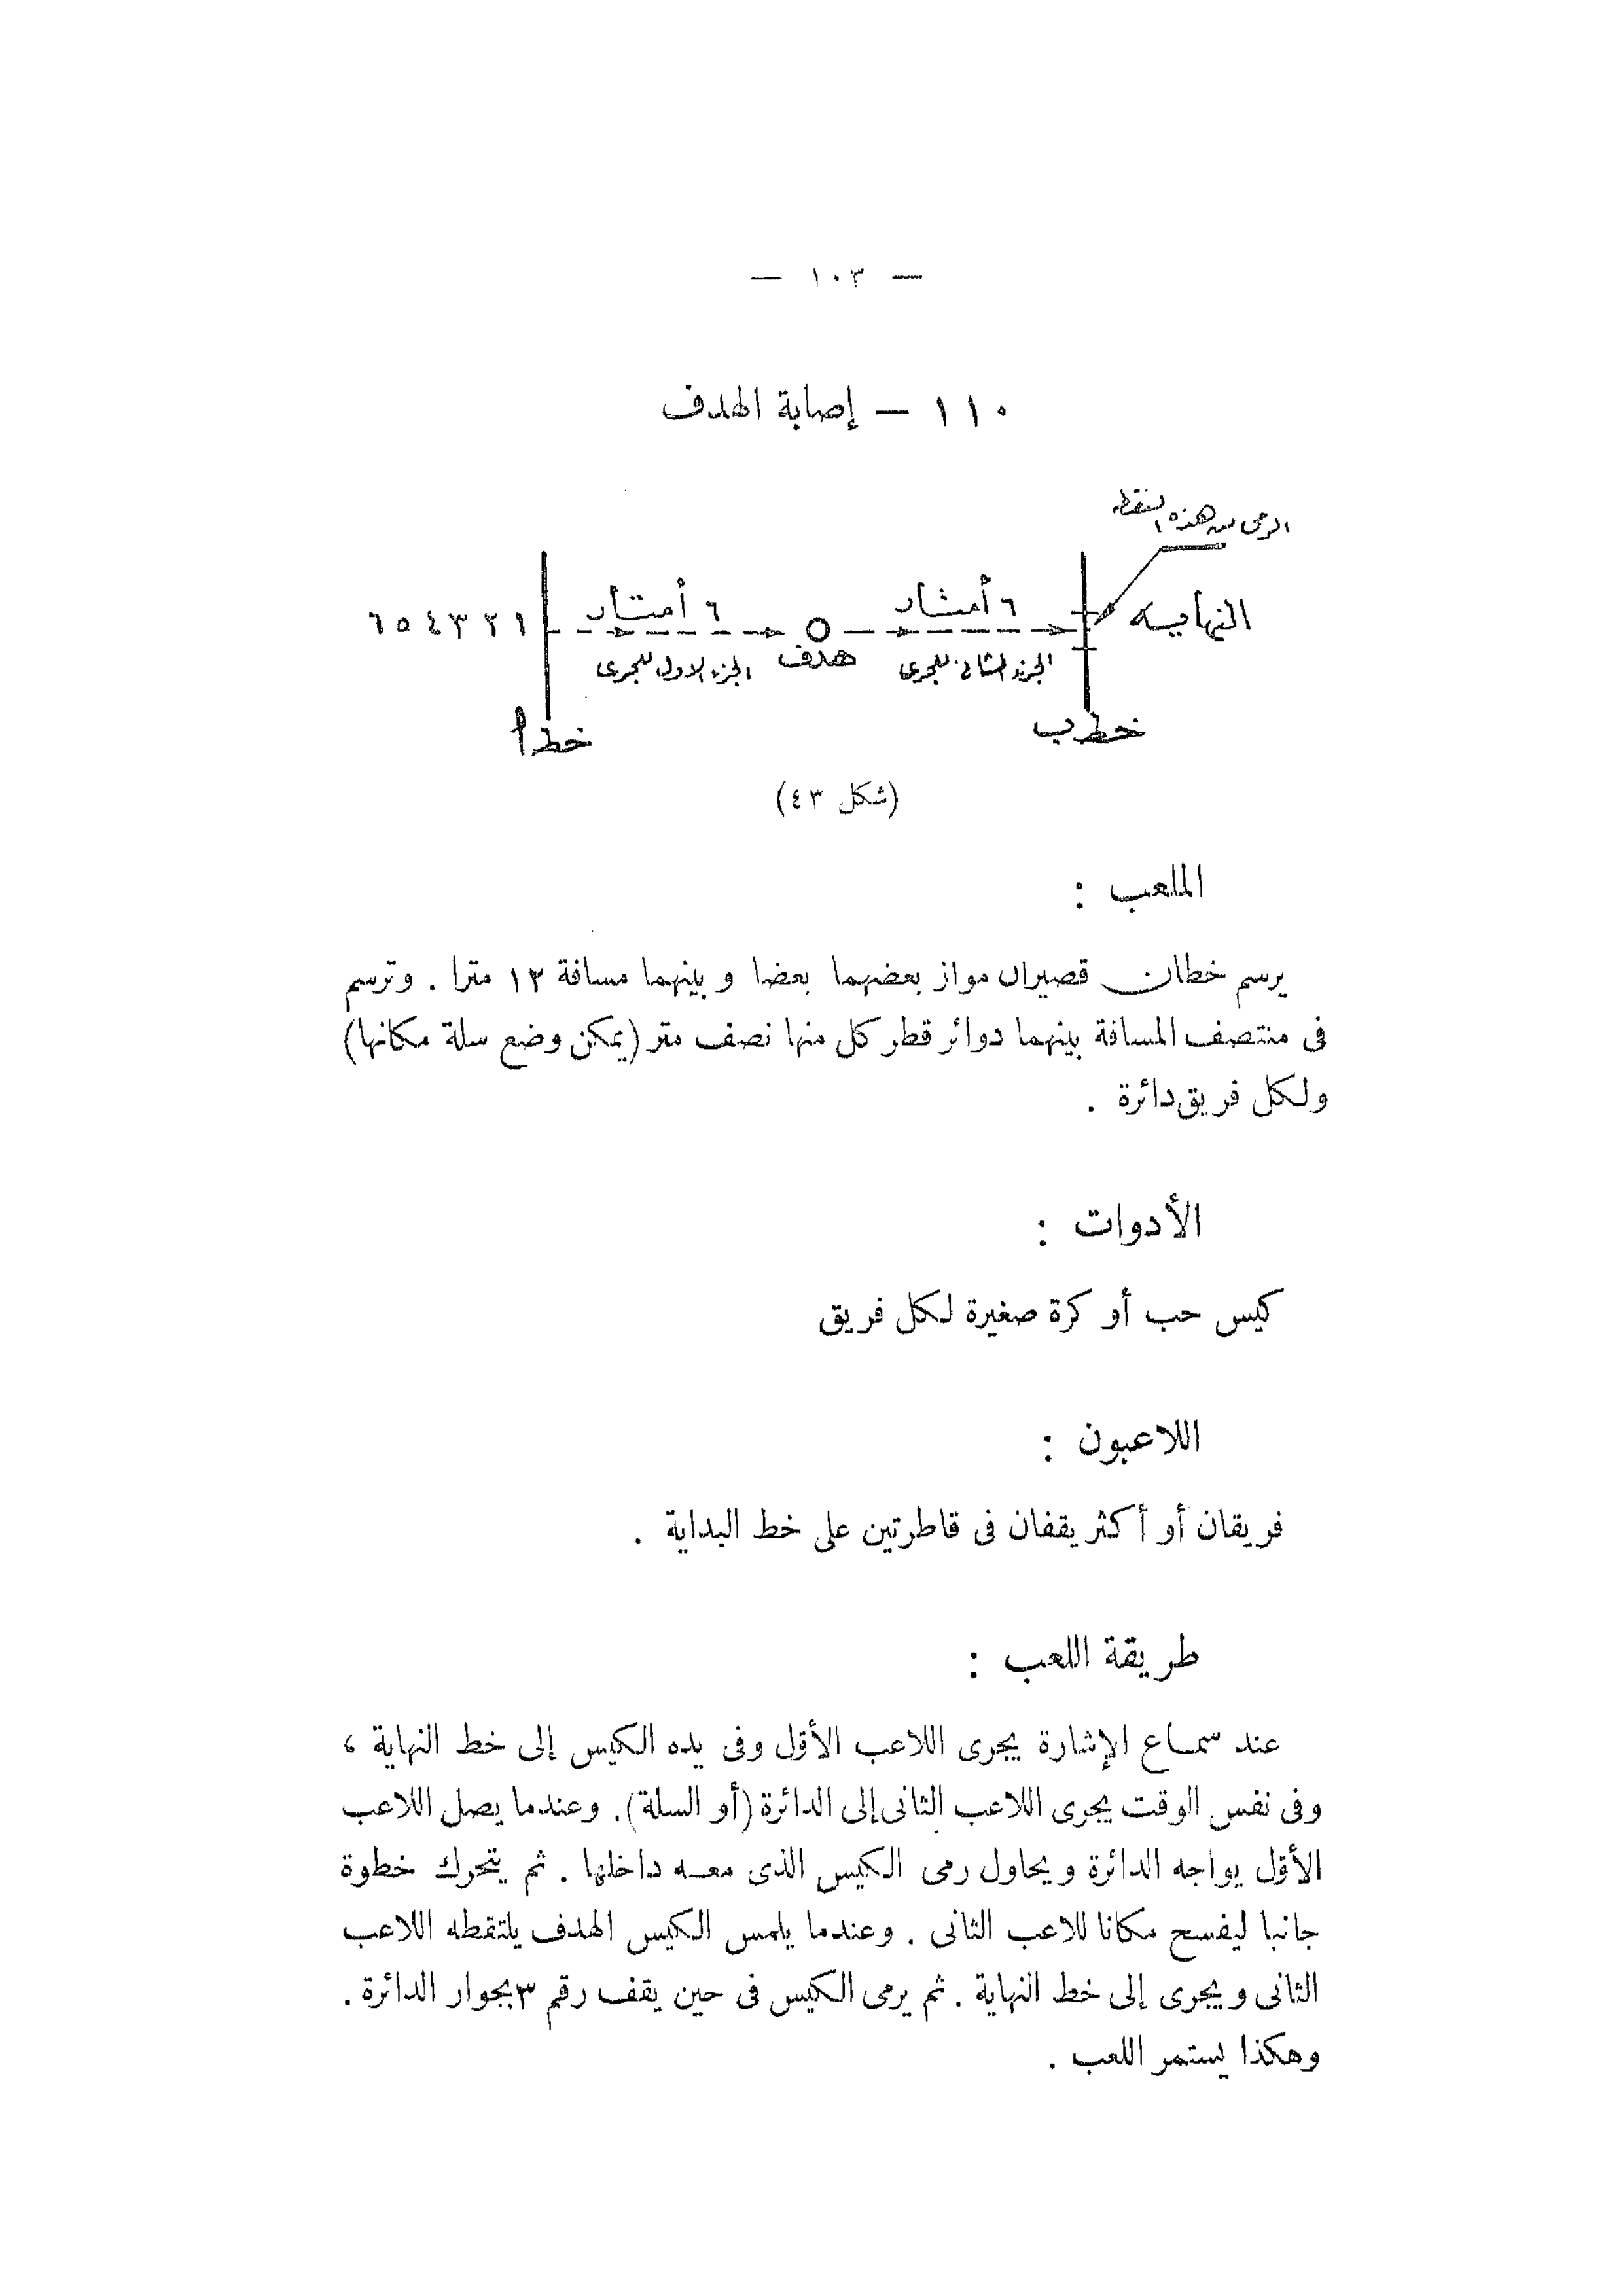 — ١٠٣ —
١١٠ — إصابة الهدف
الرمى من هذه النقطة
٦ أمتار
٦ أمتار
النهاية
١ ٢ ٣ ٤ ٥ ٦
هدف
الجزء الثانى للجرى
الجزء الاول للجرى
خط ب
خط أ
(شكل ٤٣)
الملعب :
يرسم خطان قصيران مواز بعضهما بعضا وبينهما مسافة ١٢ مترا . وترسم
فى منتصف المسافة بينهما دوائر قطر كل منها نصف متر (يمكن وضع سلة مكانها)
ولكل فريق دائرة .
الأدوات :
كيس حب أو كرة صغيرة لكل فريق
اللاعبون :
فريقان أو أكثر يقفان فى قاطرتين على خط البداية .
طريقة اللعب :
عند سماع الإشارة يجرى اللاعب الأوّل وفى يده الكيس إلى خط النهاية ،
وفى نفس الوقت يجرى اللاعب الثانى إلى الدائرة (أو السلة). وعندما يصل اللاعب
الأوّل يواجه الدائرة ويحاول رمى الكيس الذى معه داخلها . ثم يتحرك خطوة
جانبا ليفسح مكانا للاعب الثانى . وعندما يلمس الكيس الهدف يلتقطه اللاعب
الثانى ويجرى إلى خط النهاية . ثم يرمى الكيس فى حين يقف رقم ٣ بجوار الدائرة .
وهكذا يستمر اللعب .